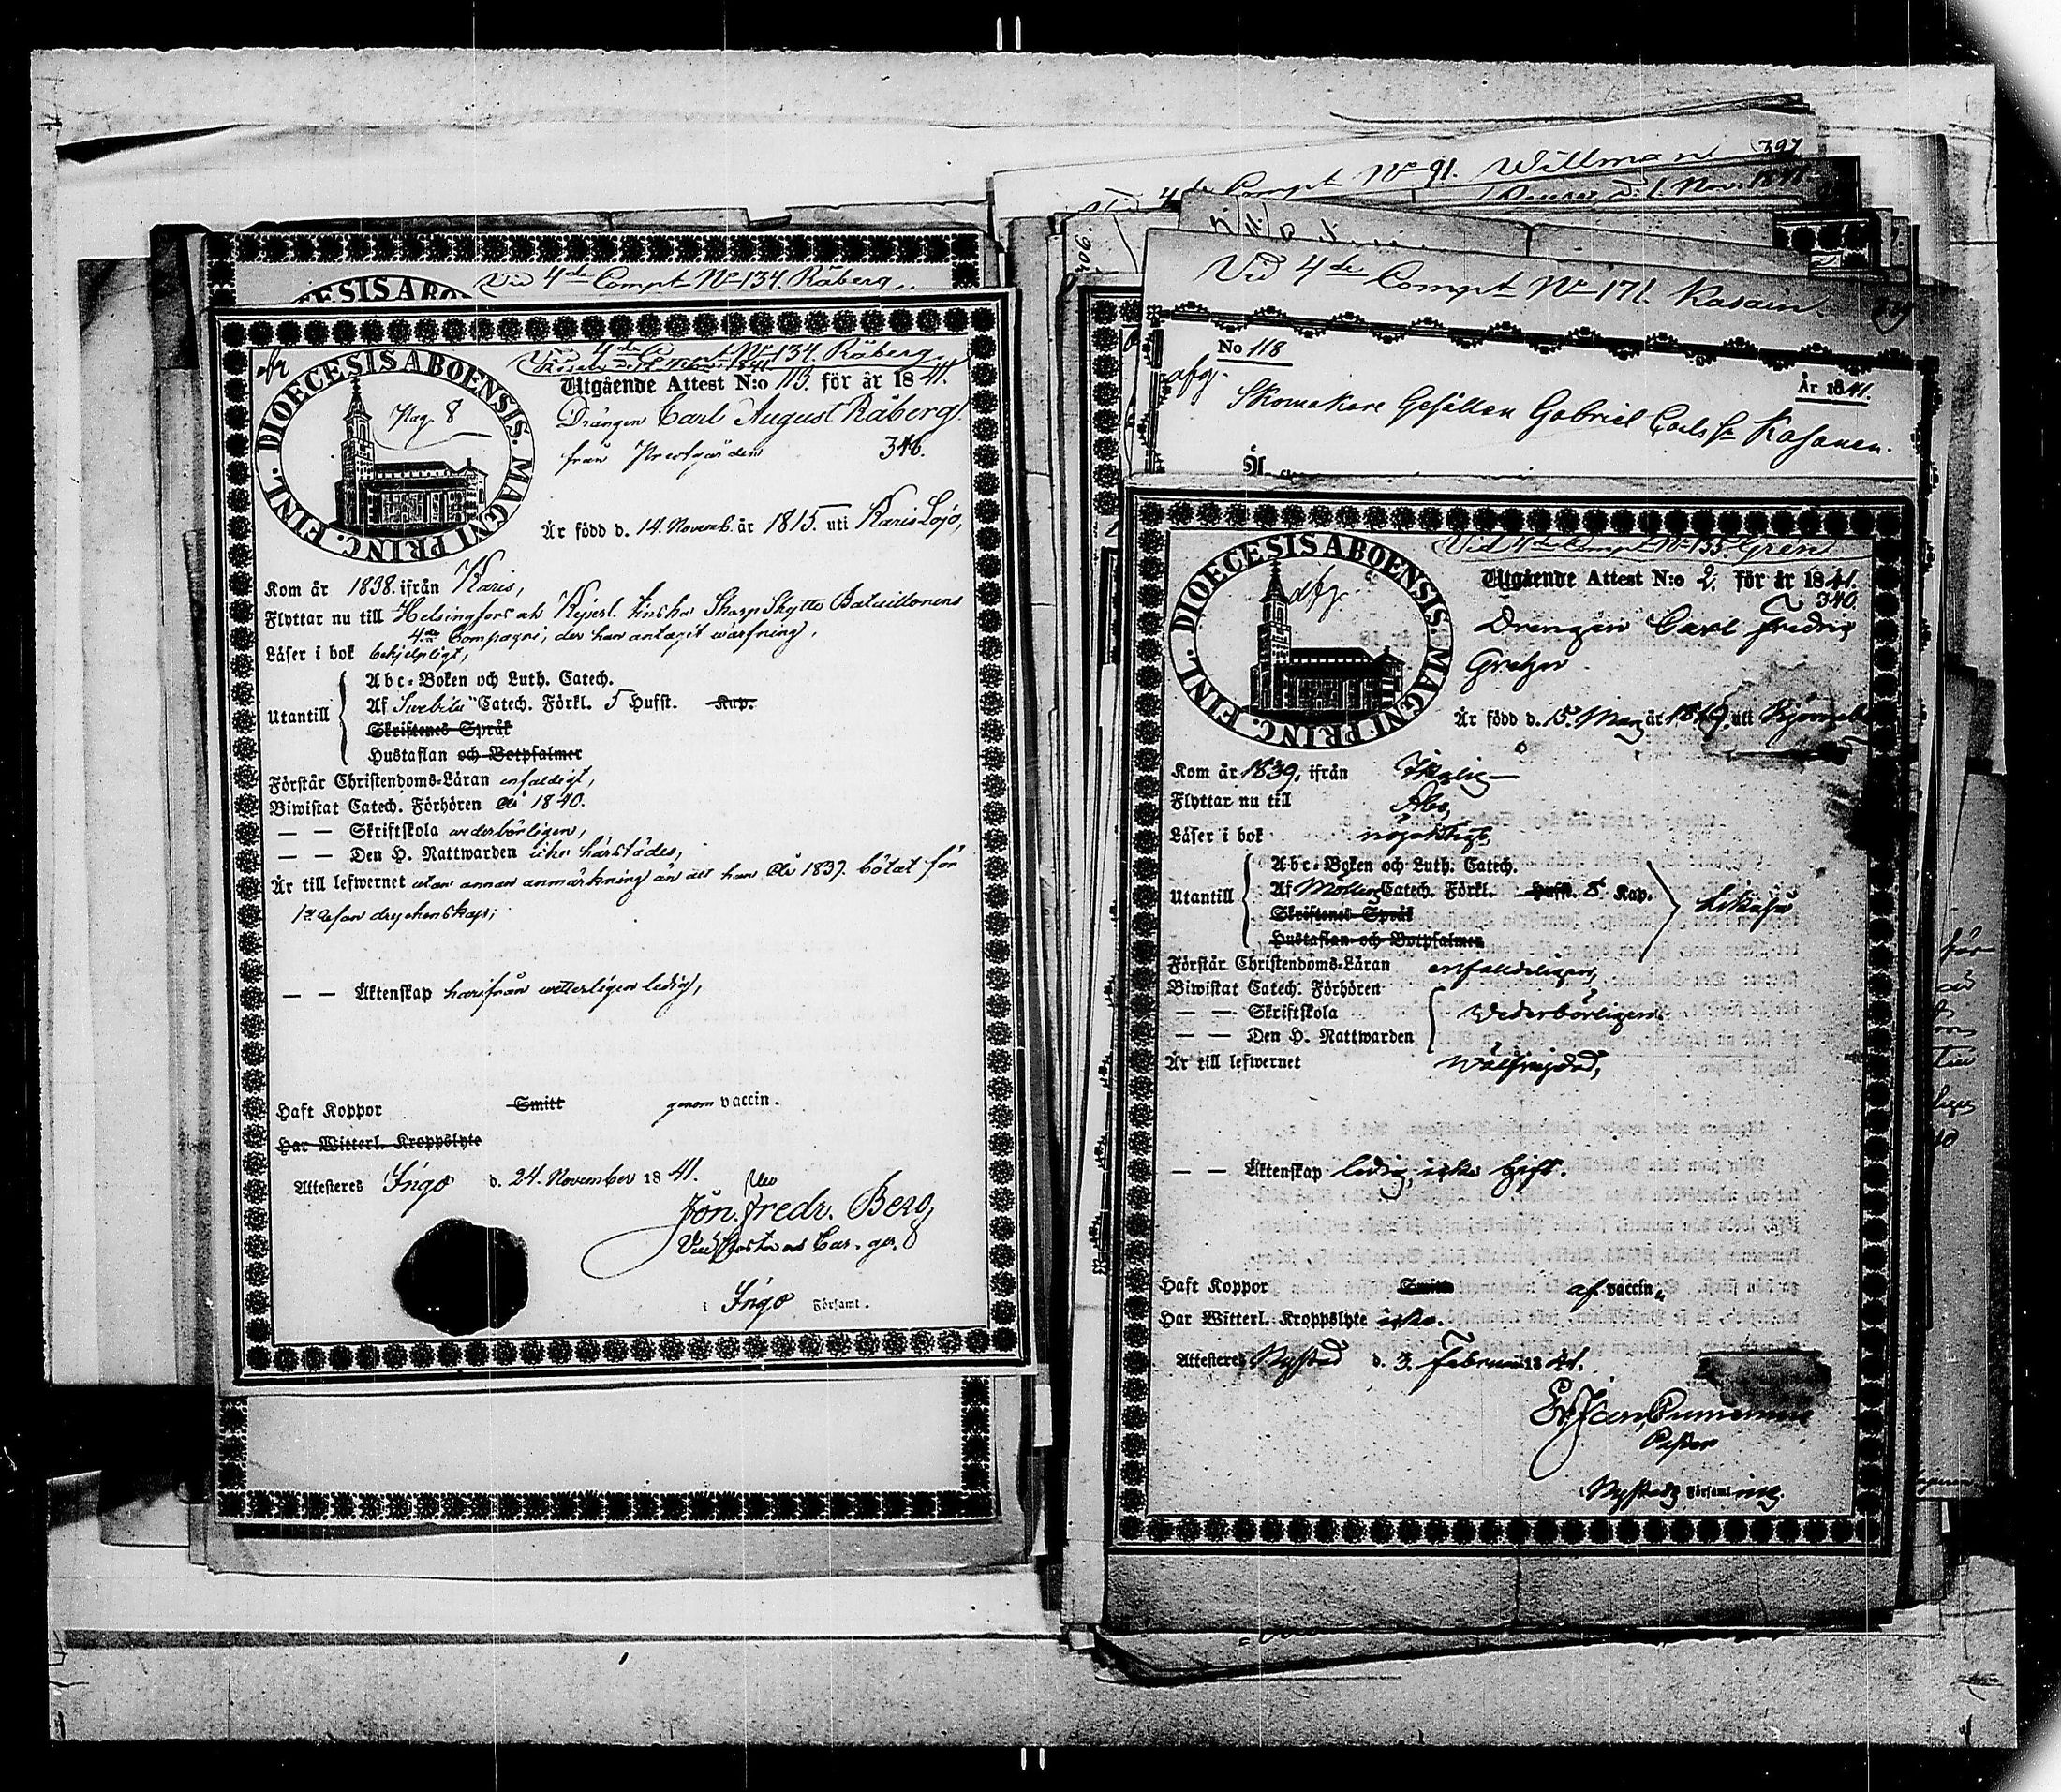 Vid 4de Compt No 134. Råberg.
DIOECESIS ABOENSIS. MAGNI PRINC. FINL.
Pag. 8
Vid 4de Compt No 134. Råberg
Utgående Attest N:o 113. för år 1841.
Drängen Carl August Råberg
från Prestgården 346.
Är född d. 14. Novemb. år 1815. uti Karis Lojo,
Kom år 1838. ifrån Karis,
Flyttar nu till Helsingfors och Kejserl. Finska Skarp Skytte Bataillonens
4de Compagni, der han antagit wärfning.
Läser i bok behjelpligt,
Utantill
Abc-Boken och Luth. Catech.
Af Svebilii Catech. Förkl. 5 Hufst. Kap.
Skriftenes Språk
Hustaflan och Botpsalmer
Förstår Christendoms-Läran enfaldigt,
Biwistat Catech. Förhören år 1840.
— — Skriftskola wederbörligen,
— — Den H. Nattwarden icke härstädes,
Är till lefwernet utan annan anmärkning än att han år 1837. bötat för
1a resan dryckenskap;
— — Äktenskap härifrån wetterligen ledig,
Haft Koppor Smitt genom vaccin.
Har Witterl. Kroppslyte
Attesteres Ingo d. 24. November 1841.
Jon. Fredr. Berg,
i Ingo Församl.
Vid 4de Compt No 91. Willman 397
Nov. 1841
406.
Vid 4de Compt No 171. Kasain.
No 118
År 1841.
afg.
Skomakare Gesällen Gabriel Carls Sn Kasanen.
DIOECESIS ABOENSIS. MAGNI PRINC. FINL.
afg
Vid 4de Compt No 135. Gren
Utgående Attest N:o 2. för år 1841.
340.
Drengen Carl Fredric
Är född d. 15. Maij år 1819. uti
Kom år 1839. ifrån
Flyttar nu till Åbo,
Läser i bok nöjaktigt,
Utantill
Abc-Boken och Luth. Catech.
Af Möllers Catech. Förkl. Hufst. 5 Kap.
Skriftenes Språk
Hustaflan och Botpsalmer
Likaså
Förstår Christendoms-Läran enfaldeligen,
Biwistat Catech. Förhören
— — Skriftskola
— — Den H. Nattwarden
Wederbörligen.
Är till lefwernet Wälfrejdad,
— — Äktenskap ledig, icke Gift.
Haft Koppor Smitt af vaccin.
Har Witterl. Kroppslyte icke.
Attesteres Nystad d. 3. Februarii 1841.
Pastor
i Nystads Församling